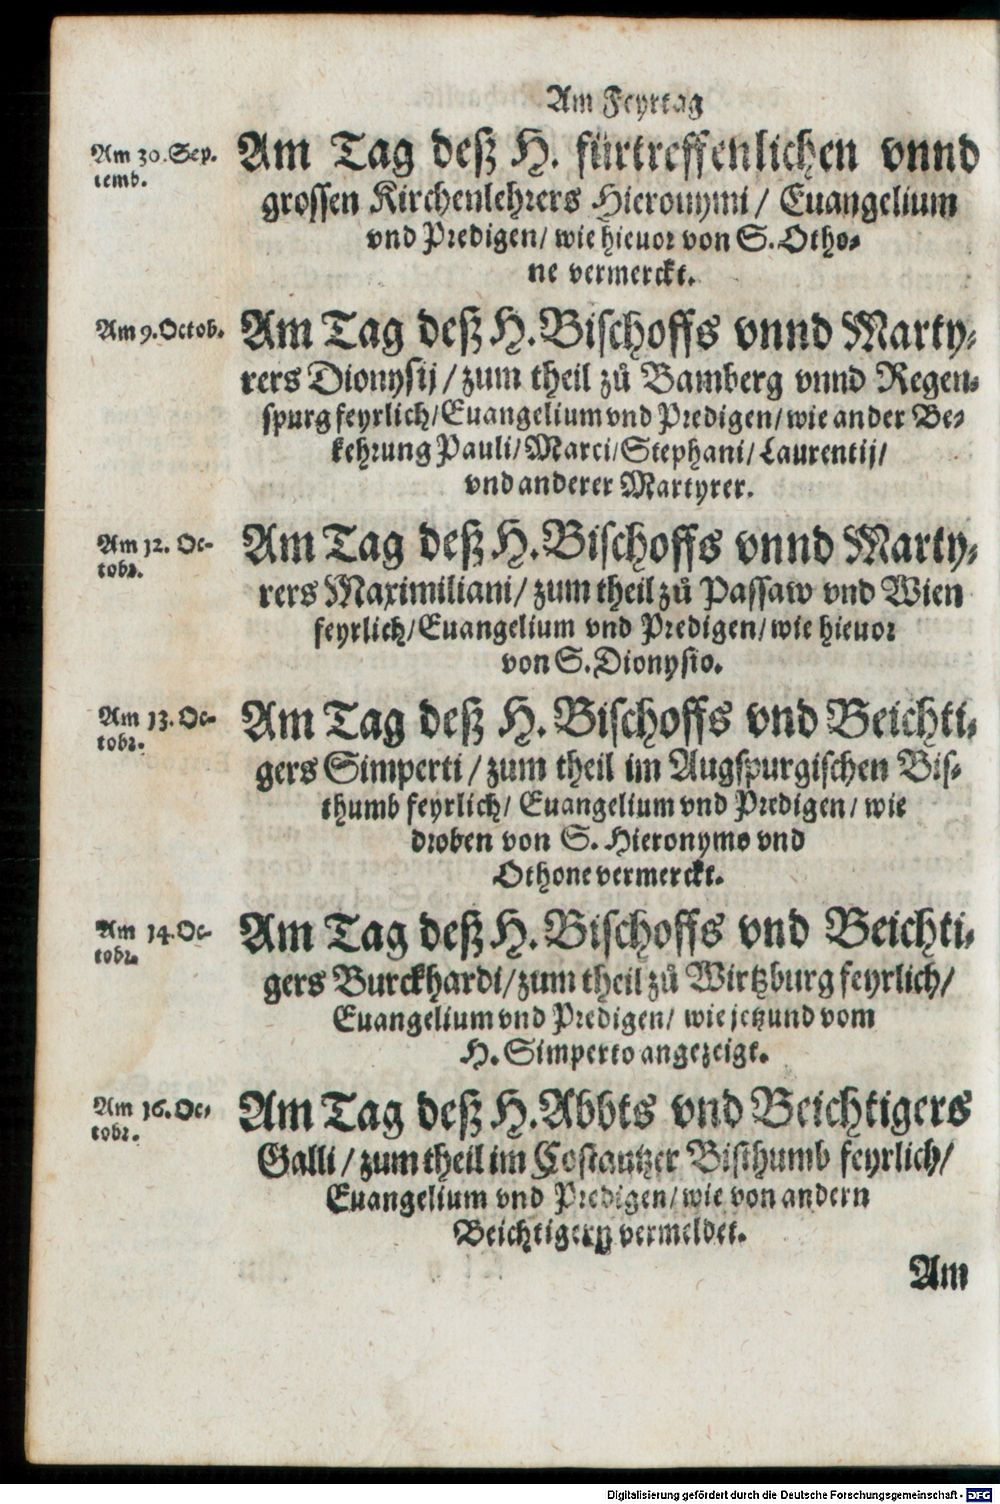 Am Feyrtag
Am 30. Sep-
temb.
Am Tag deß H. fürtreffenlichen vnnd
grossen Kirchenlehrers Hieronymi / Euangelium
vnd Predigen / wie hieuor von S. Otho-
ne vermerckt.
Am 9. Octob.
Am Tag deß H. Bischoffs vnnd Marty-
rers Dionysij / zum theil zů Bamberg vnnd Regen-
spurg feyrlich / Euangelium vnd Predigen / wie an der Be-
kehrung Pauli / Marci / Stephani / Laurentij /
vnd anderer Martyrer.
Am 12. Oc-
tobr.
Am Tag deß H. Bischoffs vnnd Marty-
rers Maximiliani / zum theil zů Passaw vnd Wien
feyrlich / Euangelium vnd Predigen / wie hieuor
von S. Dionysio.
Am 13. Oc-
tobr.
Am Tag deß H. Bischoffs vnd Beichti-
gers Simperti / zum theil im Augspurgischen Bis-
thumb feyrlich / Euangelium vnd Predigen / wie
droben von S. Hieronymo vnd
Othone vermerckt.
Am 14. Oc-
tobr.
Am Tag deß H. Bischoffs vnd Beichti-
gers Burckhardi / zum theil zů Wirtzburg feyrlich /
Euangelium vnd Predigen / wie jetzund vom
H. Simperto angezeigt.
Am 16. Oc-
tobr.
Am Tag deß H. Abbts vnd Beichtigers
Galli / zum theil im Costantzer Bisthumb feyrlich /
Euangelium vnd Predigen / wie von andern
Beichtigern vermeldet.
Am
Digitalisierung gefördert durch die Deutsche Forschungsgemeinschaft - DFG